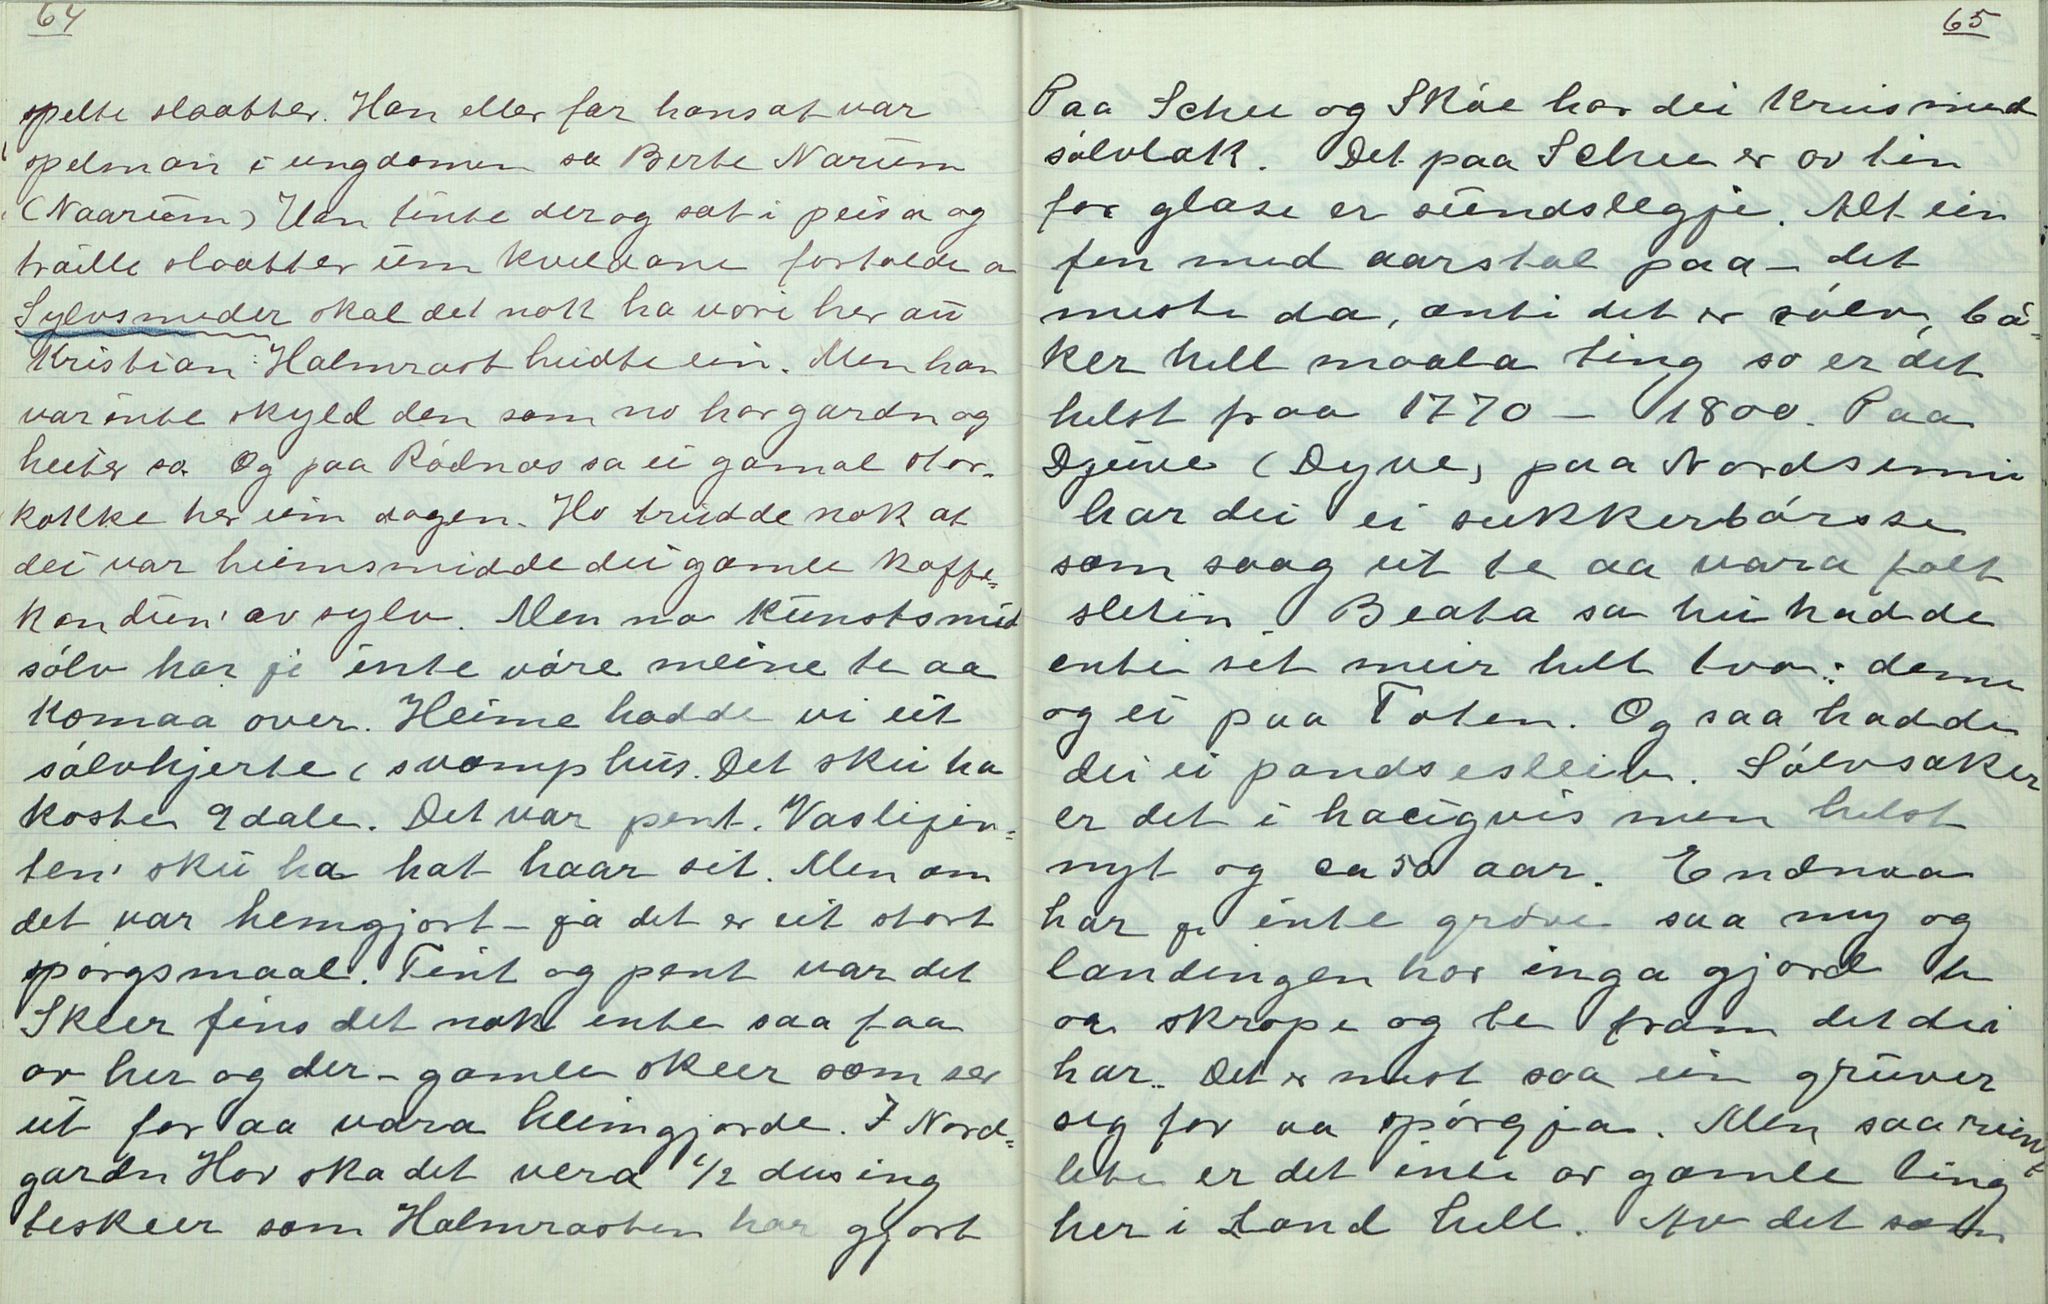 64
spelte slaatter. Han eller far hans at var
spelman i ungdomen sa Berte Narŭm
(Naarŭm) Han tente der og sat i peisa og
traille slaatter ŭm kveldane fortalde a
Sylvsmeder skal det nokk ha vore her aŭ
Kristian Halmrast heidte ein. Men han
var inte skyld den som no har gardn og
heiter sa. Og paa Rödnæs sa ei gamal stor-
kokke her ŭm dagen. Ho trŭdde nok at
dei var heimsmidde dei gamle kaffe-
kandŭn' av sylv. Men no kŭnstsmid
sölv har je inte vöre meine te aa
komaa over. Heime hadde vi eit
sölvhjerte (svamphŭs. Det skŭ ha
kosta 9 dale. Det var pent. Vaslijen-
ten' skŭ ha hat haar sit. Men om
det var hemgjort - ja det er eit stort
spörgsmaal. Fint og pent var det
Skeer fins det nok ente saa faa
av her og der - gamle skeer som ser
ŭt for aa vara heimgjorde. I Nord-
gardn Hov ska det vera 1/2 dusing
teskeer som Halmrasten har gjort
65
Paa Schee og Sköe har dei Kruis med
sölvlok. Det paa Schee er av tin
for glase er sŭndslegje. Alt ein
fen med aarstal paa - det
meste da, anti det er sölv, bö-
ker hell maala ting so er det
helst fraa 1770 - 1800. Paa
Djŭve (Dyve) paa Nordsinni
har dei ei sukkerbörsse
som saag ut te aa vara falt
sletin. Beata sa hŭ hadde
ente set meir hell tvo: denne
og ei paa Toten. Og saa hadde
dei ei pandseslein. Sölvsaker
er det i haŭgvis men helst
nyt og ca 50 aar. Endnaa
har je inte gröve saa my og
landingen har inga gjord te
aa skrape og te fram det dei
har. Det er mest saa ein grŭver
seg for aa spörgja. Men saa
er det inte av gamle ting
her i Land hell. Av det som